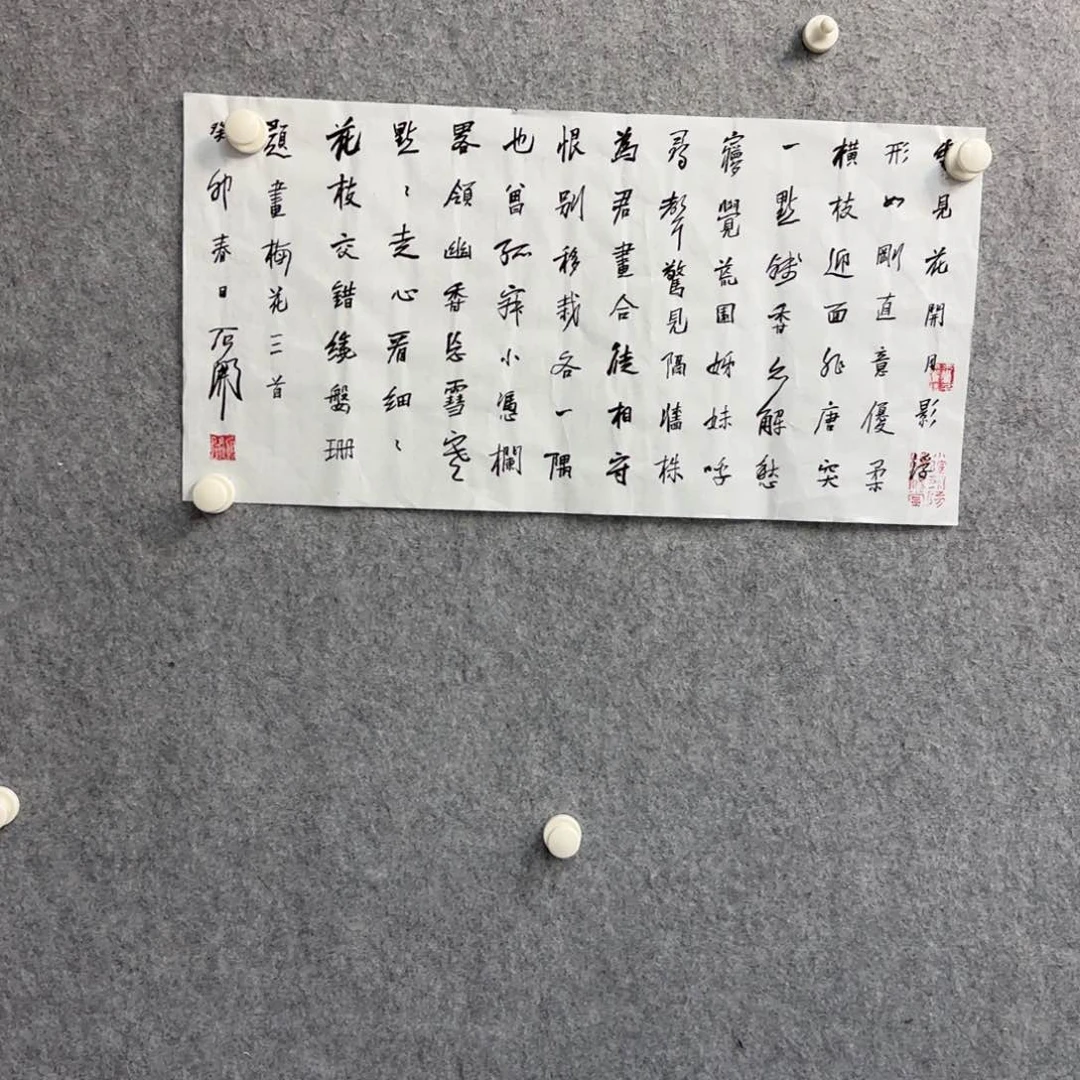 見花開月影浮
形如剛直意優柔
橫枝迎面非唐突
一點錢香解愁
寢覺荒園姊妹呼
尋聲驚見隔牆株
為君畫合徒相守
恨別移栽各一隅
也曾孤寂小憑欄
畧領幽香忘雪寒
點〻走心看細〻
花枝交錯緣盤珊
題畫梅花三首
癸卯春日石開